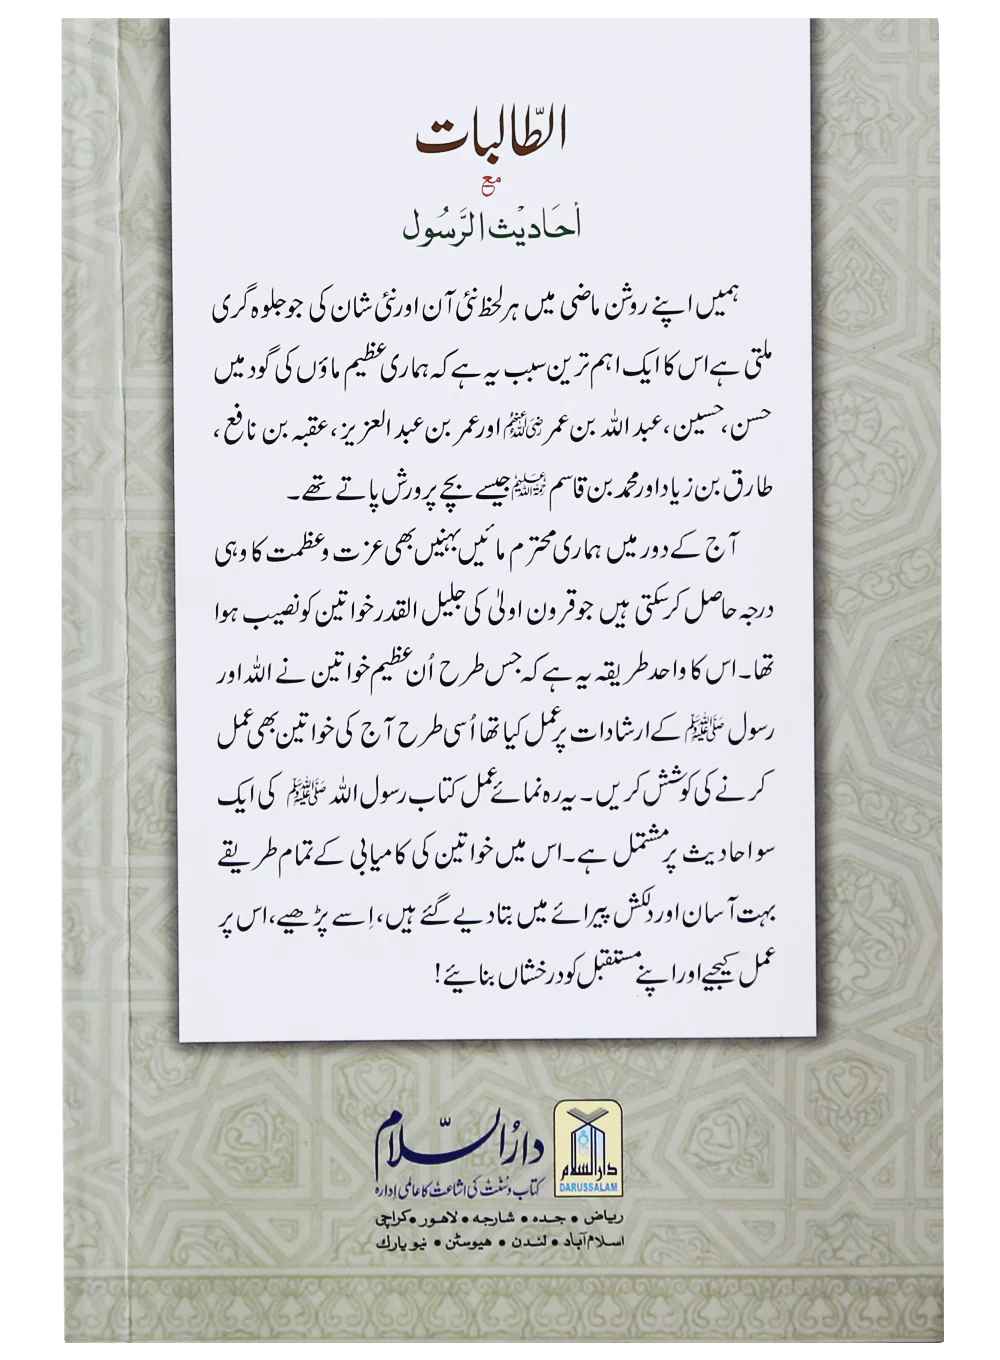 الطّالبات
مع
أحَاديْث الرَّسُول
ہمیں اپنے روشن ماضی میں ہر لحظ نئی آن اور نئی شان کی جو جلوہ گری
ملتی ہے اس کا ایک اہم ترین سبب یہ ہے کہ ہماری عظیم ماؤں کی گود میں
حسن، حسین، عبد اللہ بن عمر رضی اللہ عنہم اور عمر بن عبد العزیز، عقبہ بن نافع،
طارق بن زیاد اور محمد بن قاسم رحمۃ اللہ علیہم جیسے بچے پرورش پاتے تھے۔
آج کے دور میں ہماری محترم مائیں بہنیں بھی عزت و عظمت کا وہی
درجہ حاصل کر سکتی ہیں جو قرون اولیٰ کی جلیل القدر خواتین کو نصیب ہوا
تھا۔ اس کا واحد طریقہ یہ ہے کہ جس طرح اُن عظیم خواتین نے اللہ اور
رسول ﷺ کے ارشادات پر عمل کیا تھا اُسی طرح آج کی خواتین بھی عمل
کرنے کی کوشش کریں۔ یہ رہ نمائے عمل کتاب رسول اللہ ﷺ کی ایک
سو احادیث پر مشتمل ہے۔ اس میں خواتین کی کامیابی کے تمام طریقے
بہت آسان اور دلکش پیرائے میں بتا دیے گئے ہیں، اِسے پڑھیے، اس پر
عمل کیجیے اور اپنے مستقبل کو درخشاں بنائیے!
دارُالسّلام
کتاب و سنّت کی اشاعت کا عالمی ادارہ
دارالسلام
DARUSSALAM
ریاض • جدہ • شارجہ • لاہور • کراچی
اسلام آباد • لندن • ہیوسٹن • نیو یارک